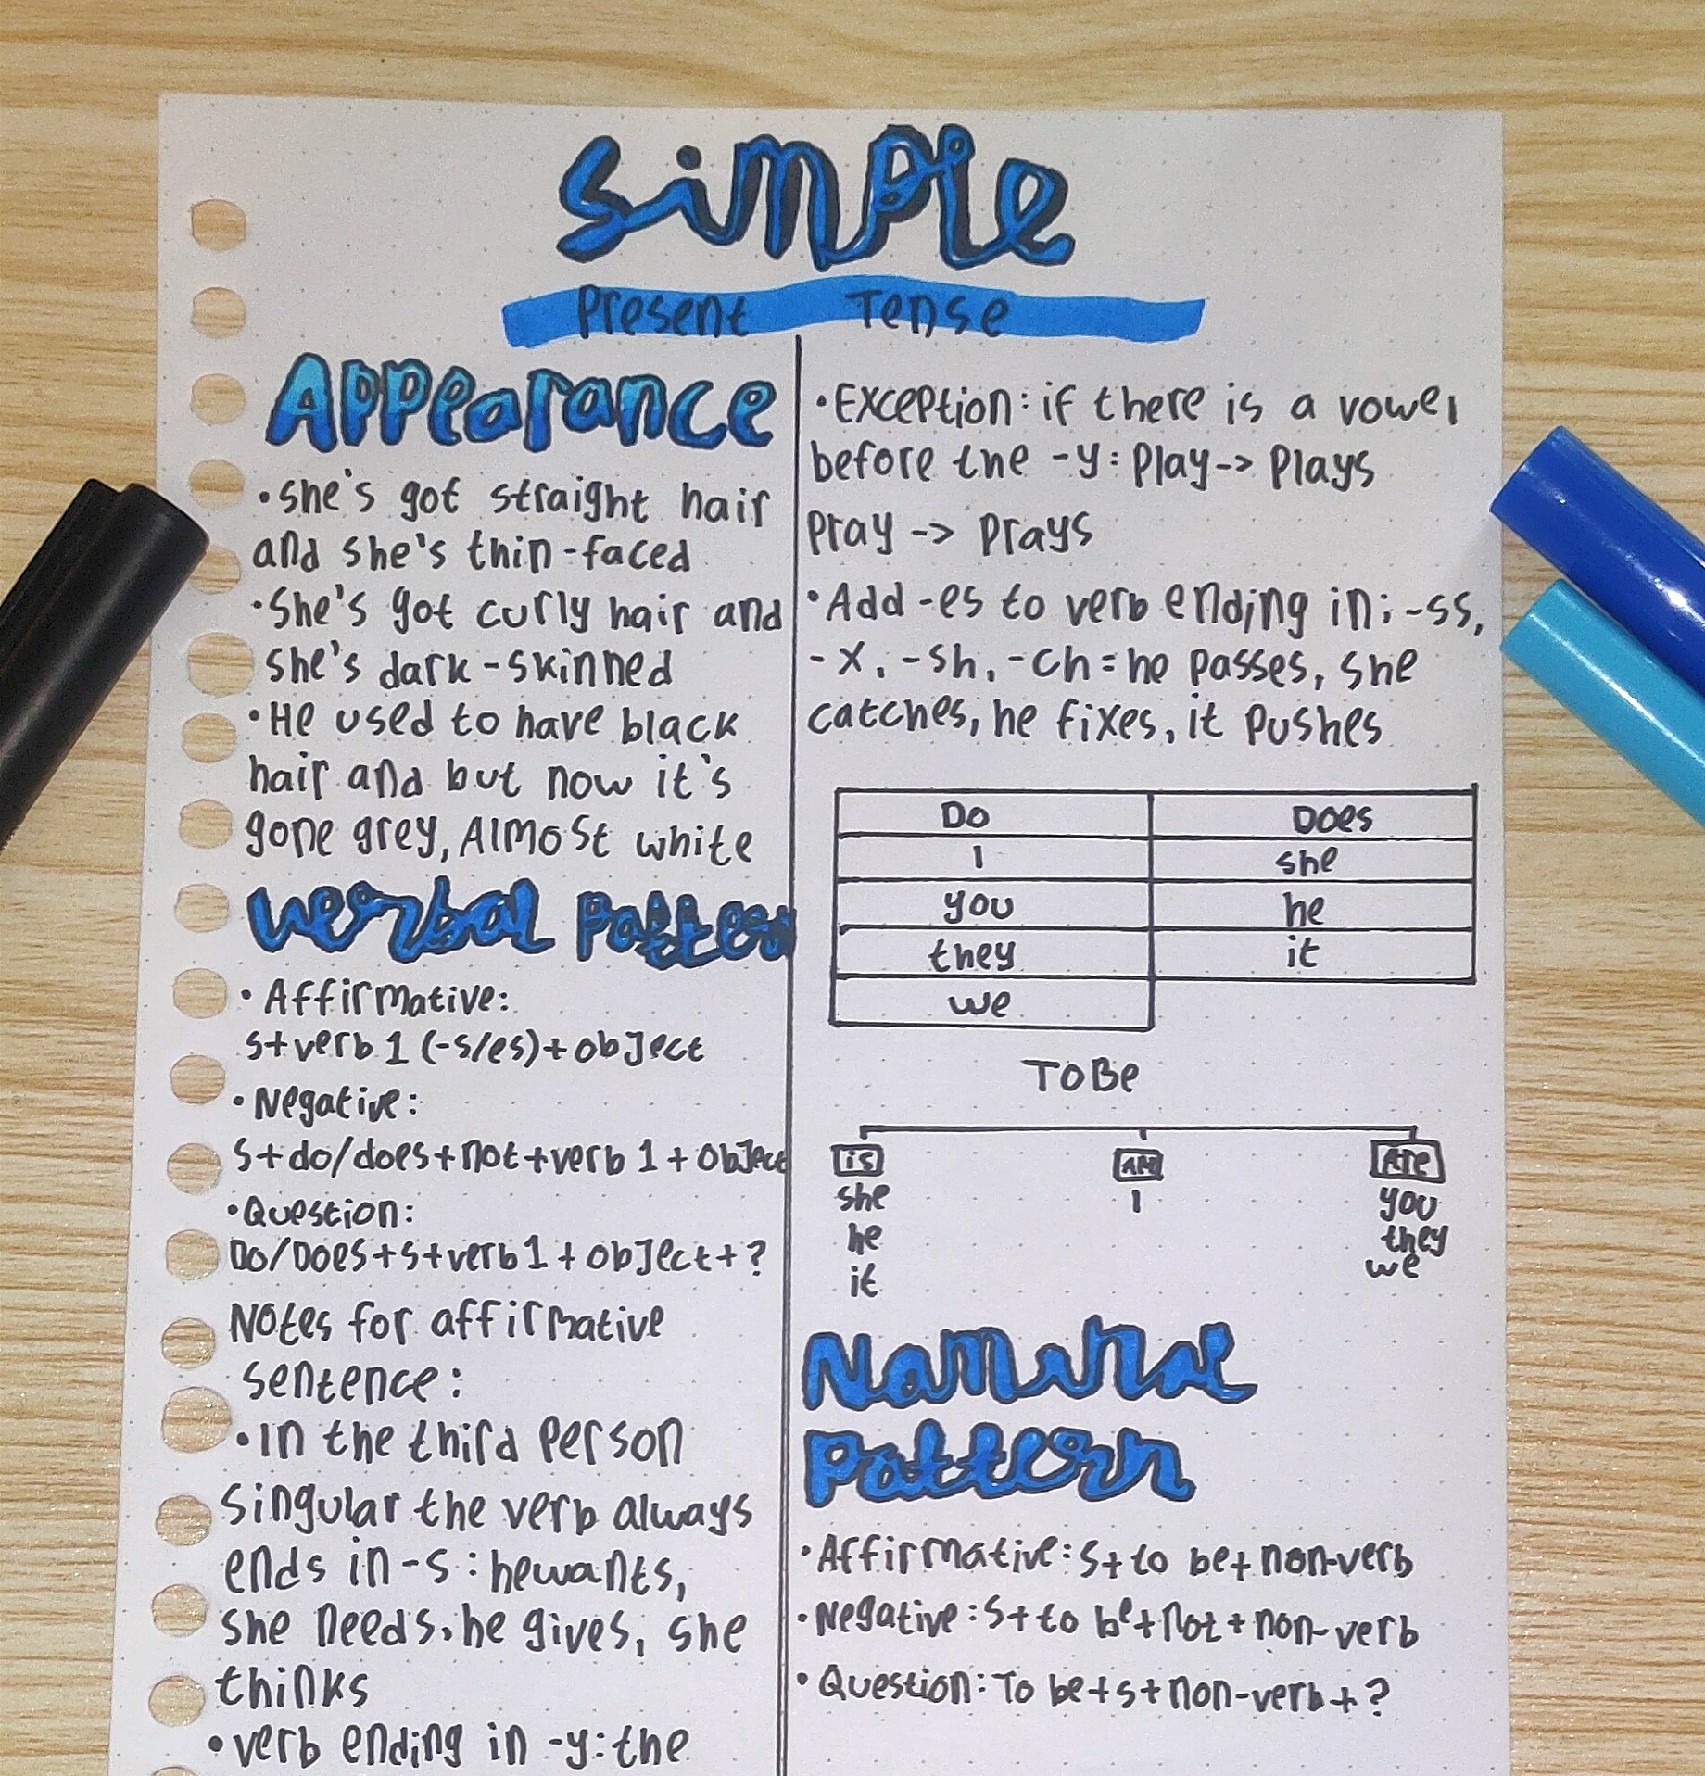 Simple
Present Tense
Appearance
•she's got straight hair
and she's thin-faced
•She's got curly hair and
she's dark-skinned
•He used to have black
hair and but now it's
gone grey, Almost white
Verbal Pattern
•Affirmative:
s+verb 1 (-s/es)+object
•Negative:
s+do/does+not+verb 1+object
•Question:
Do/Does+s+verb 1+object+?
Notes for affirmative
sentence:
•In the third person
singular the verb always
ends in -s: hewants,
she needs, he gives, she
thinks
•verb ending in -y: the
•Exception: if there is a vowel
before the -y: Play-> Plays
Pray -> Prays
•Add -es to verb ending in: -ss,
-x, -sh, -ch = he passes, she
catches, he fixes, it pushes
Do Does
I she
you he
they it
we
TO Be
is AM Are
she I you
he they
it we
Naminal
Pattern
•Affirmative: s+to be+non-verb
•Negative: s+to be+not+non-verb
•Question: To be+s+non-verb+?